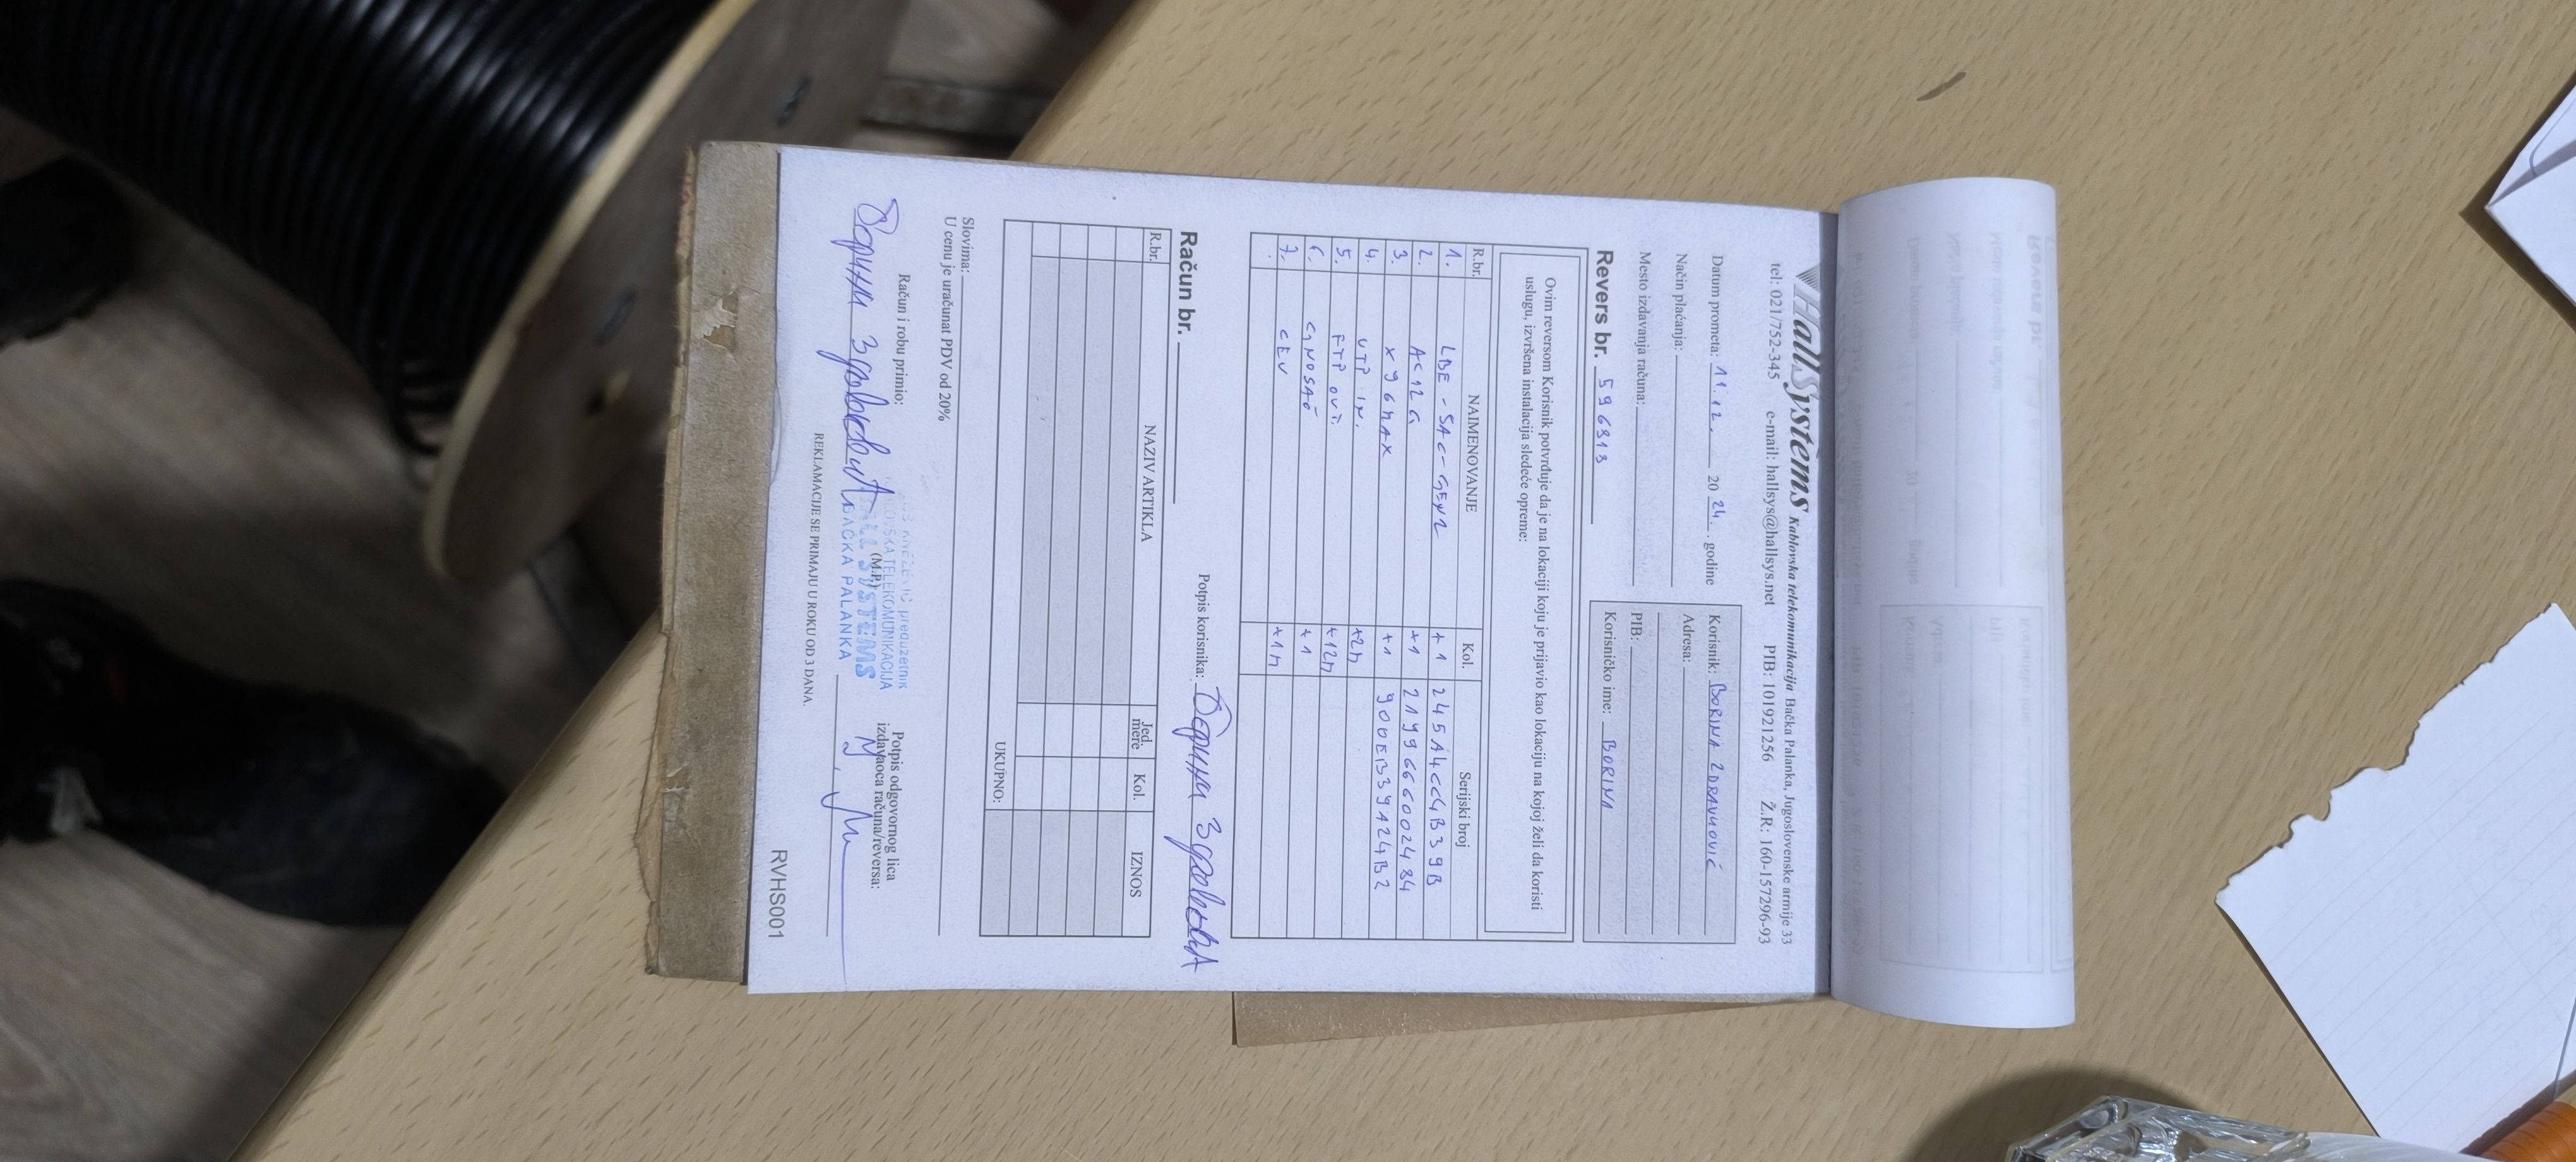 HallSystems Kablovska telekomunikacija Bačka Palanka, Jugoslovenske armije 33
tel: 021/752-345 e-mail: hallsys@hallsys.net PIB: 101921256 Ž.R: 160-157296-93
Datum prometa: 11.12. 20 24. godine
Način plaćanja:
Mesto izdavanja računa:
Korisnik: BORINA ZDRAVKOVIĆ
Adresa:
PIB:
Korisničko ime: BORINA
Revers br. 596313
Ovim reversom Korisnik potvrđuje da je na lokaciji koju je prijavio kao lokaciju na kojoj želi da koristi
uslugu, izvršena instalacija sledeće opreme:
R.br. NAIMENOVANJE Kol. Serijski broj
1. LBE-5AC-GEN2 +1 245A4CC4B39B
2. AC12G +1 2199666002484
3. X96MAX +1 900EB39A24B2
4. UTP IN. +2m
5. FTP OUT. +12m
6. +1
7. CEV +1m
Potpis korisnika: Борина
Račun br.
R.br. NAZIV ARTIKLA Jed. mere Kol. IZNOS
UKUPNO:
Slovima:
U cenu je uračunat PDV od 20%
Račun i robu primio:
Борина
(M.P.)
preduzetnik
TELEKOMUNIKACIJA
HALL SYSTEMS
BAČKA PALANKA
Potpis odgovornog lica
izdavaoca računa/reversa:
REKLAMACIJE SE PRIMAJU U ROKU OD 3 DANA.
RVHS001